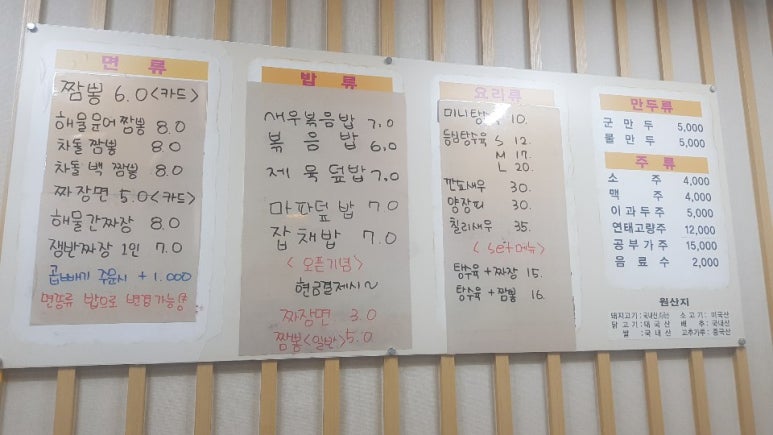 면 류
짬뽕 6.0 <카드>
해물문어짬뽕 8.0
차돌 짬뽕 8.0
차돌 백 짬뽕 8.0
짜장면 5.0 <카드>
해물간짜장 8.0
쟁반짜장 1인 7.0
곱빼기 주문시 + 1.000
면종류 밥으로 변경가능
밥 류
새우볶음밥 7.0
볶 음 밥 6.0
제육덮밥 7.0
마파덮밥 7.0
잡채밥 7.0
< 오픈기념 >
현금결제시~
짜장면 3.0
짬뽕<일반> 5.0
요리류
미니탕수 10.
등심탕수육 S 12.
M 17.
L 20.
깐쇼새우 30.
양장피 30.
칠리새우 35.
( set메뉴 )
탕수육 + 짜장 15.
탕수육 + 짬뽕 16.
만두류
군 만 두 5,000
물 만 두 5,000
주 류
소 주 4,000
맥 주 4,000
이과두주 5,000
연태고량주 12,000
공부가주 15,000
음 료 수 2,000
원산지
돼지고기:국내산 소고기:미국산
닭고기:태국산 배추:국내산
쌀:국내산 고추가루:중국산